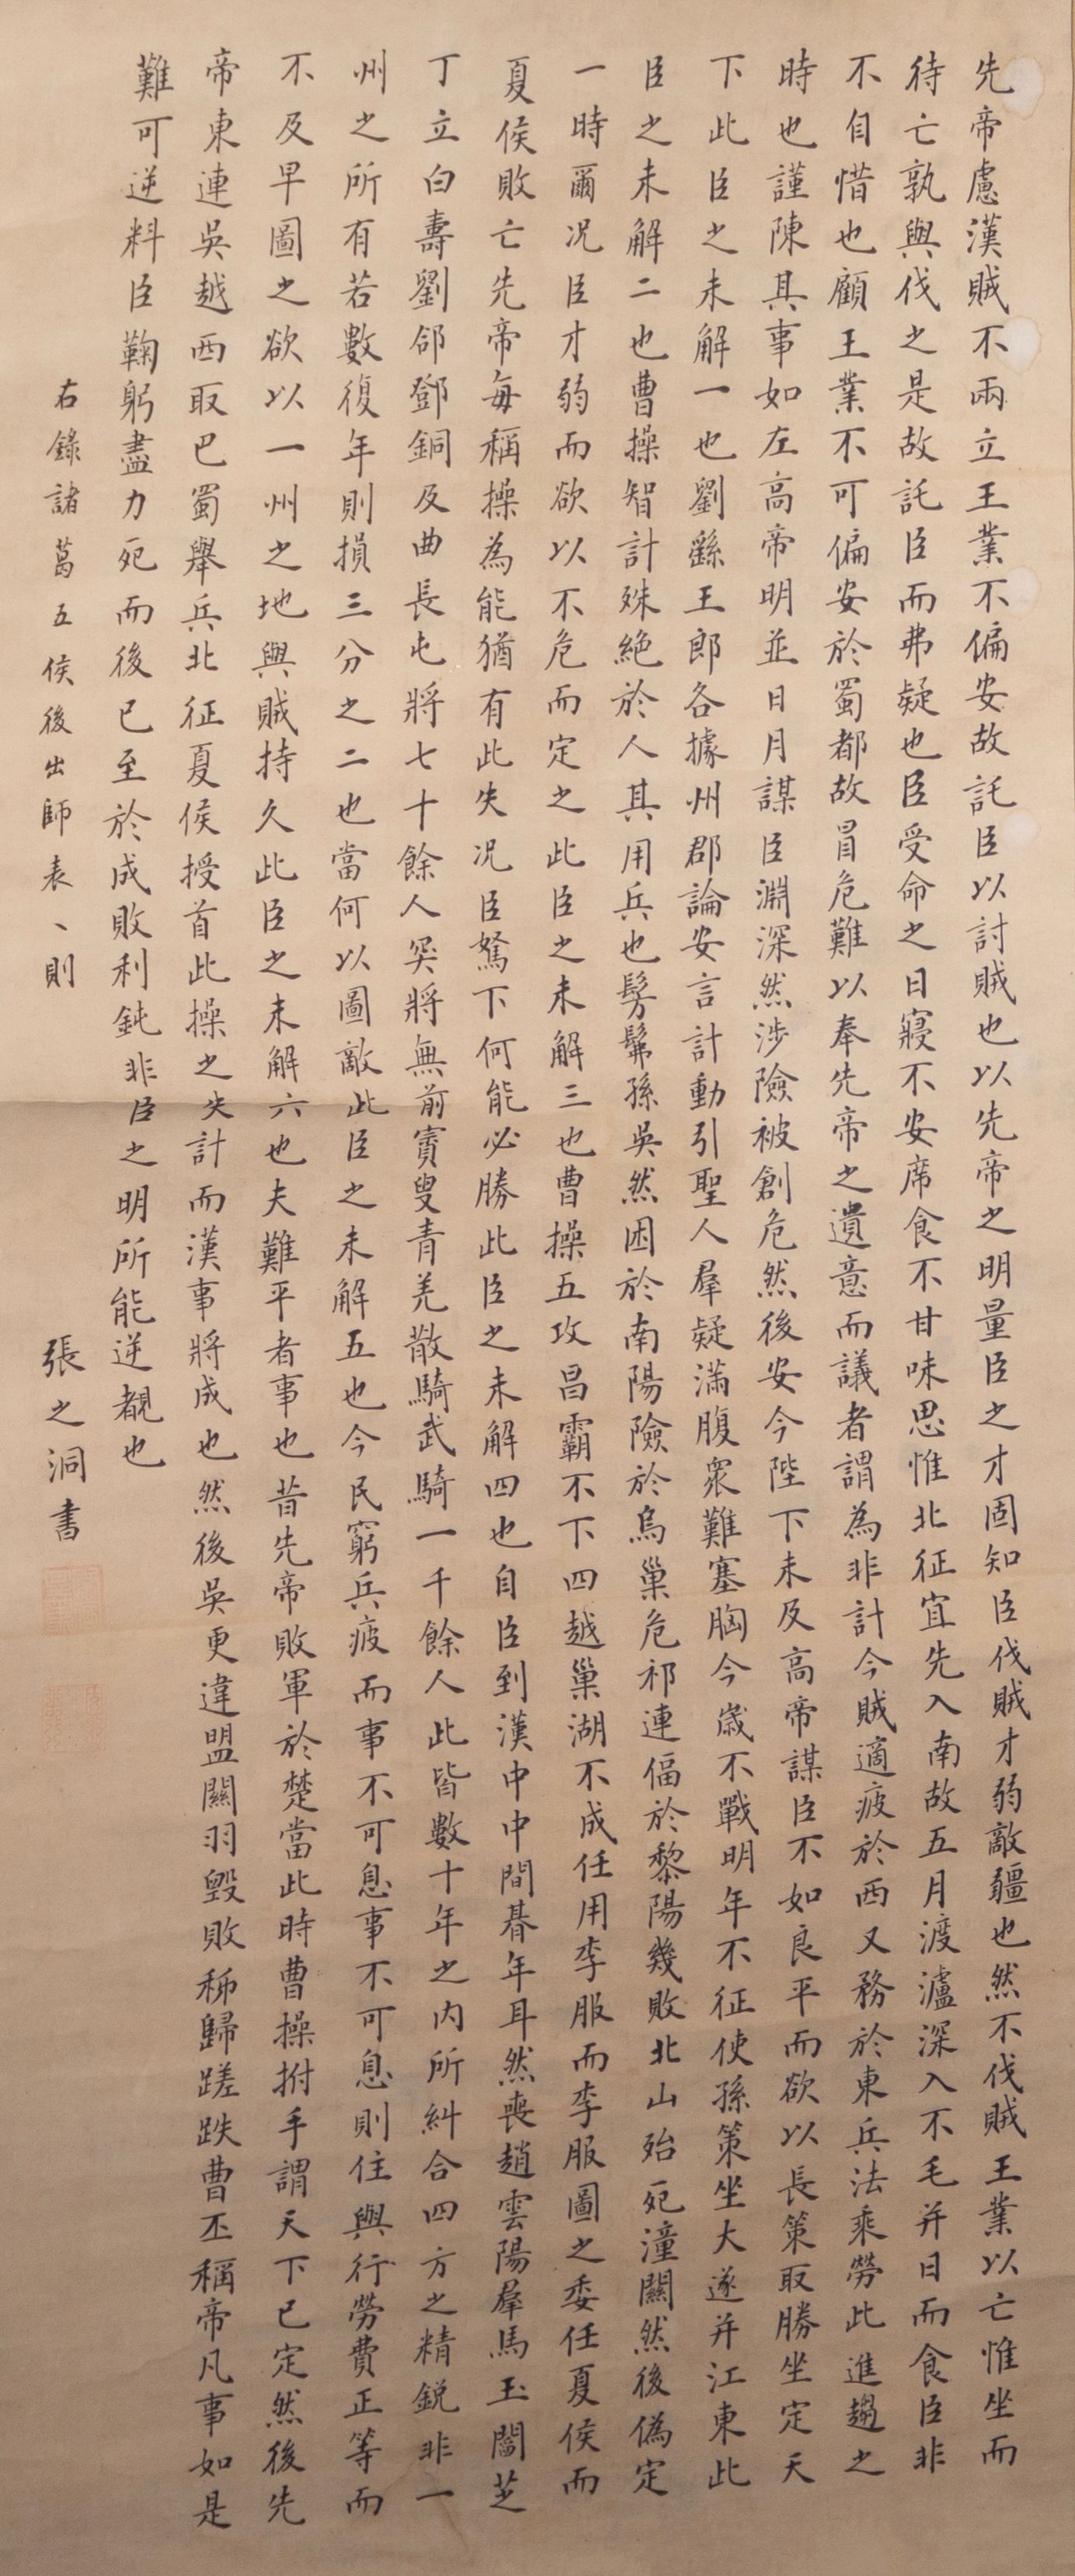 先帝慮漢賊不兩立王業不偏安故託臣以討賊也以先帝之明量臣之才固知臣伐賊才弱敵疆也然不伐賊王業以亡惟坐而
待亡孰與伐之是故託臣而弗疑也臣受命之日寢不安席食不甘味思惟北征宜先入南故五月渡瀘深入不毛并日而食臣非
不自惜也顧王業不可偏安於蜀都故冒危難以奉先帝之遺意而議者謂為非計今賊適疲於西又務於東兵法乘勞此進趨之
時也謹陳其事如左高帝明並日月謀臣淵深然涉險被創危然後安今陛下未及高帝謀臣不如良平而欲以長策取勝坐定天
下此臣之未解一也劉繇王郎各據州郡論安言計動引聖人羣疑滿腹衆難塞胸今歲不戰明年不征使孫策坐大遂并江東此
臣之未解二也曹操智計殊絕於人其用兵也髣髴孫吳然困於南陽險於烏巢危祁連偪於黎陽幾敗北山殆死潼關然後偽定
一時爾況臣才弱而欲以不危而定之此臣之未解三也曹操五攻昌霸不下四越巢湖不成任用李服而李服圖之委任夏侯而
夏侯敗亡先帝每稱操為能猶有此失況臣駑下何能必勝此臣之未解四也自臣到漢中中間朞年耳然喪趙雲陽羣馬玉閻芝
丁立白壽劉郃鄧銅及曲長屯將七十餘人突將無前賨叟青羌散騎武騎一千餘人此皆數十年之内所糾合四方之精銳非一
州之所有若數復年則損三分之二也當何以圖敵此臣之未解五也今民窮兵疲而事不可息事不可息則住與行勞費正等而
不及早圖之欲以一州之地與賊持久此臣之未解六也夫難平者事也昔先帝敗軍於楚當此時曹操拊手謂天下已定然後先
帝東連吳越西取巴蜀舉兵北征夏侯授首此操之失計而漢事將成也然後吳更違盟關羽毀敗秭歸蹉跌曹丕稱帝凡事如是
難可逆料臣鞠躬盡力死而後已至於成敗利鈍非臣之明所能逆覩也
右錄諸葛五侯後出師表、則
張之洞書